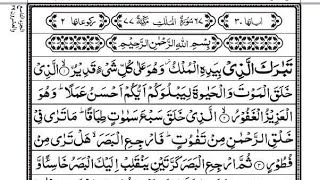 اٰیاتها ٣٠ ﴿٦٧﴾ سُوْرَةُ الْمُلْكِ مَكِّيَّةٌ ٧٧ رکوعاتها ٢
بِسْمِ اللّٰهِ الرَّحْمٰنِ الرَّحِيْمِ
تَبٰرَكَ الَّذِيْ بِيَدِهِ الْمُلْكُ وَهُوَ عَلٰى كُلِّ شَيْءٍ قَدِيْرُۨ ۝١ الَّذِيْ
خَلَقَ الْمَوْتَ وَالْحَيٰوةَ لِيَبْلُوَكُمْ اَيُّكُمْ اَحْسَنُ عَمَلًا ؕ وَهُوَ
الْعَزِيْزُ الْغَفُوْرُ ۝٢ الَّذِيْ خَلَقَ سَبْعَ سَمٰوٰتٍ طِبَاقًا ؕ مَا تَرٰى فِيْ
خَلْقِ الرَّحْمٰنِ مِنْ تَفٰوُتٍ ؕ فَارْجِعِ الْبَصَرَ ۙ هَلْ تَرٰى مِنْ
فُطُوْرٍ ۝٣ ثُمَّ ارْجِعِ الْبَصَرَ كَرَّتَيْنِ يَنْقَلِبْ اِلَيْكَ الْبَصَرُ خَاسِئًا وَّ